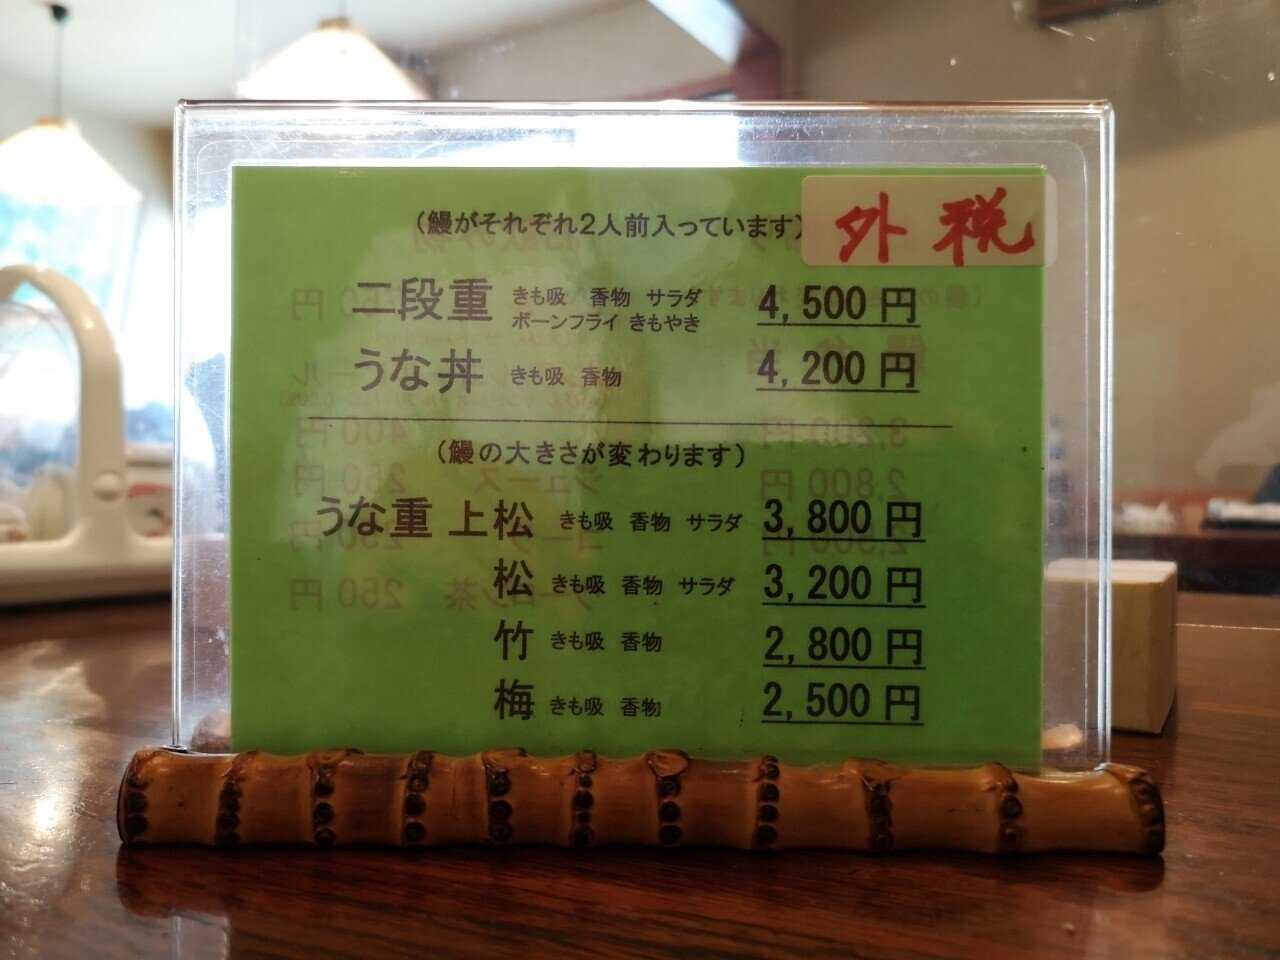 (鰻がそれぞれ2人前入っています)
外税
二段重 きも吸 香物 サラダ 4,500円
ボーンフライ きもやき
うな丼 きも吸 香物 4,200円
(鰻の大きさが変わります)
うな重 上松 きも吸 香物 サラダ 3,800円
松 きも吸 香物 サラダ 3,200円
竹 きも吸 香物 2,800円
梅 きも吸 香物 2,500円